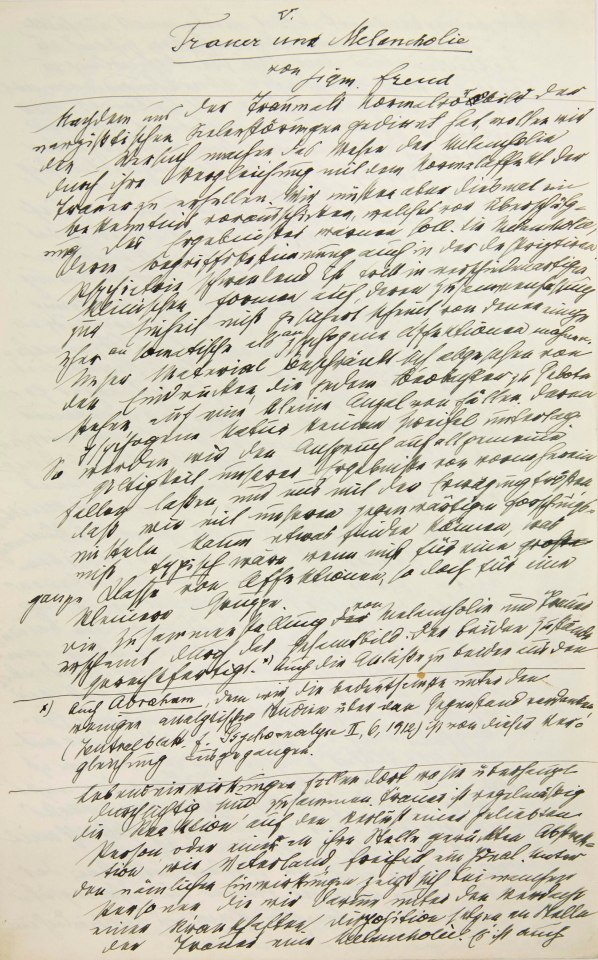 V.
Trauer und Melancholie
von Sigm. Freud
Nachdem uns der Traum als Normalvorbild der
narzisstischen Seelenstörungen gedient hat, wollen wir
den Versuch machen das Wesen der Melancholie
durch ihre Vergleichung mit dem Normalaffekt der
Trauer zu erhellen. Wir müssen aber diesmal ein
Bekenntnis vorausschicken, welches vor Überschätz-
ung des Ergebnisses warnen soll. Die Melancholie,
deren Begriffsbestimmung auch in der deskriptiven
Psychiatrie schwankend ist, tritt in verschiedenartigen
klinischen Formen auf, deren Zusammenfassung
zur Einheit nicht gesichert scheint, von denen einige
eher an somatische als an psychogene Affektionen mahnen.
Unser Material beschränkt sich abgesehen von
den Eindrücken, die jedem Beobachter zu Gebote
stehen auf eine kleine Anzal von Fällen, deren
psychogene Natur keinem Zweifel unterlag.
So werden wir den Anspruch auf allgemeine
Gültigkeit unserer Ergebnisse von vornherein
fallen lassen und uns mit der Erwägung trösten
dass wir mit unseren gegenwärtigen Forschungs-
mitteln kaum etwas finden können, was
nicht typisch wäre wenn nicht für eine grosse
ganze Klasse von Affektionen, so doch für eine
kleinere Gruppe.
Die Zusammenstellung von Melancholie und Trauer
erscheint durch das Gesamtbild der beiden Zustände
gerechtfertigt. x) Auch die Anlässe zu beiden aus den
x) Auch Abraham, dem wir die bedeutsamste unter den
wenigen analytischen Studien über den Gegenstand verdanken
(Zentralblatt f. Psychoanalyse II, 6, 1912) ist von dieser Ver-
gleichung ausgegangen.
Lebenseinwirkungen fallen dort wo sie überhaupt
durchsichtig sind zusammen. Trauer ist regelmässig
die Reaktion auf den Verlust einer geliebten
Person oder einer an ihre Stelle gerückten Abstrak-
tion wie Vaterland, Freiheit, ein Ideal. Unter
den nämlichen Einwirkungen zeigt sich bei manchen
Personen die wir darum unter den Verdacht
einer krankhaften Disposition setzen an Stelle
der Trauer eine Melancholie. Es ist auch